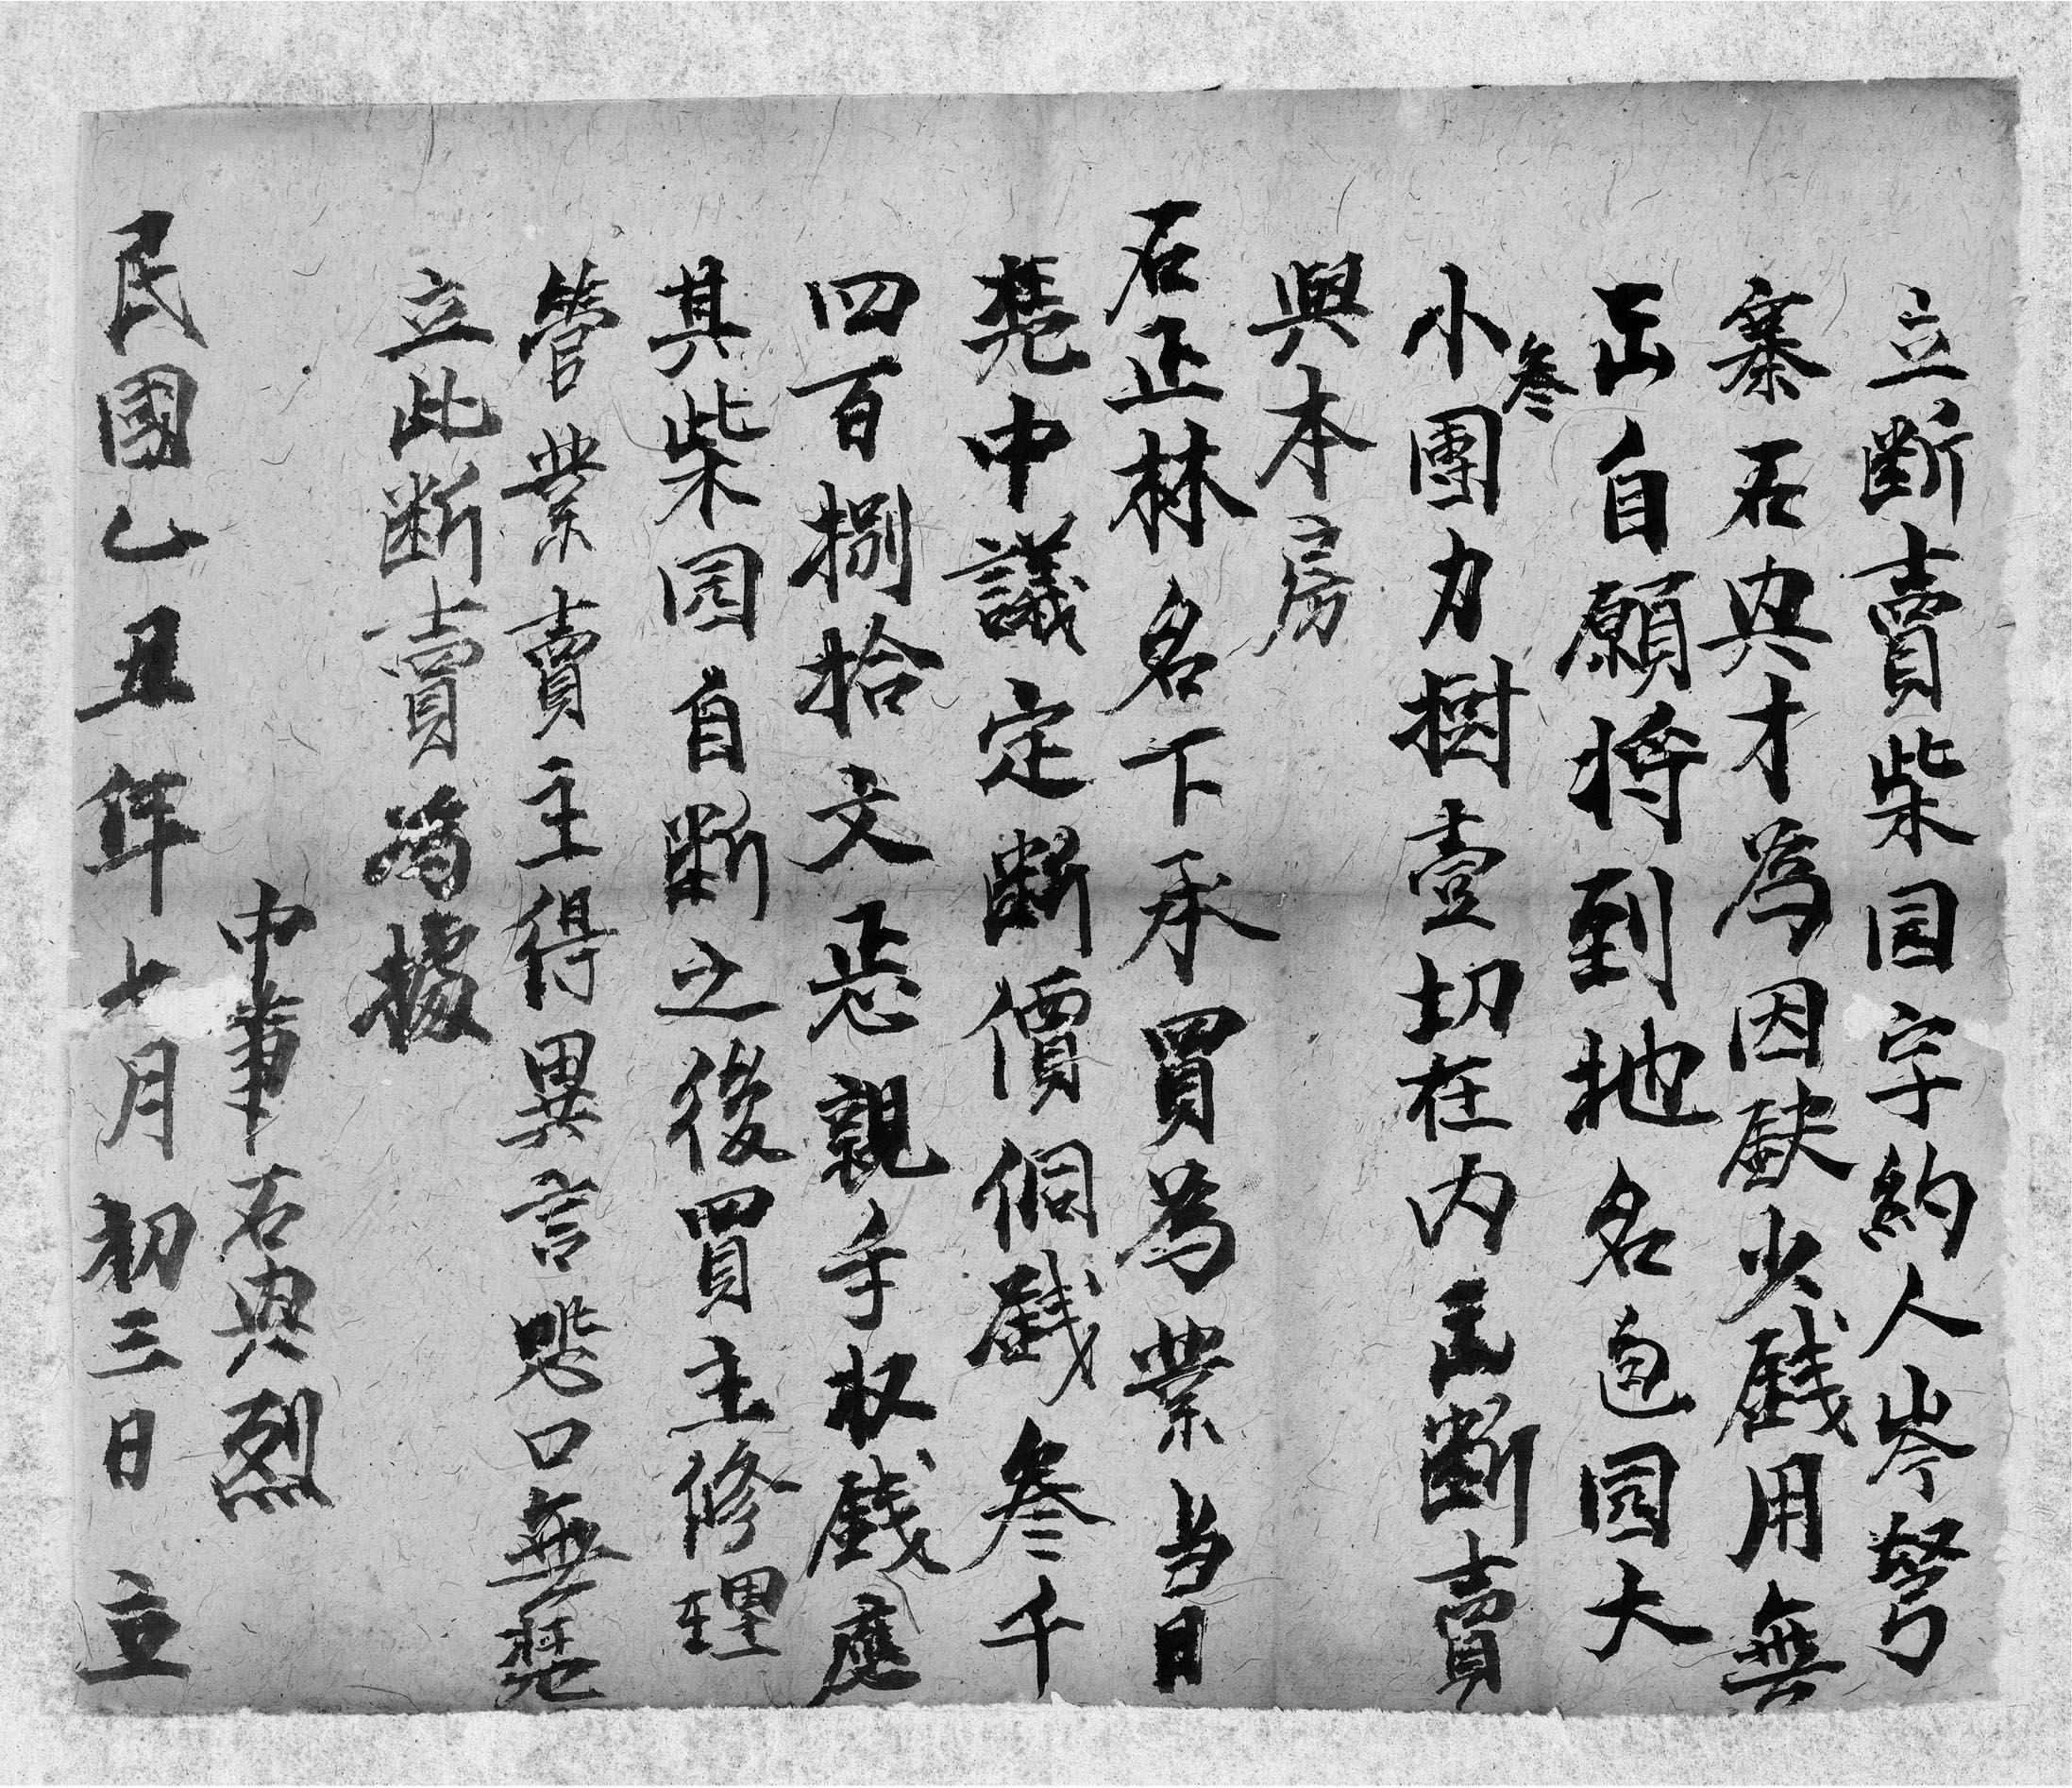 立断賣柴园字約人岑孥
寨石典才爲因缺少錢用無
出自願将到地名迫园大
小團力樹壹切在内出断賣
叁
與本房
石正林名下承買為業当日
凴中議定斷價侗錢叁千
四百捌拾文恁親手收錢應
其柴园自断之後買主修理
管業賣主得異言恐口無凴
立此断賣為據
中筆石典烈
民國乙丑年七月初三日立